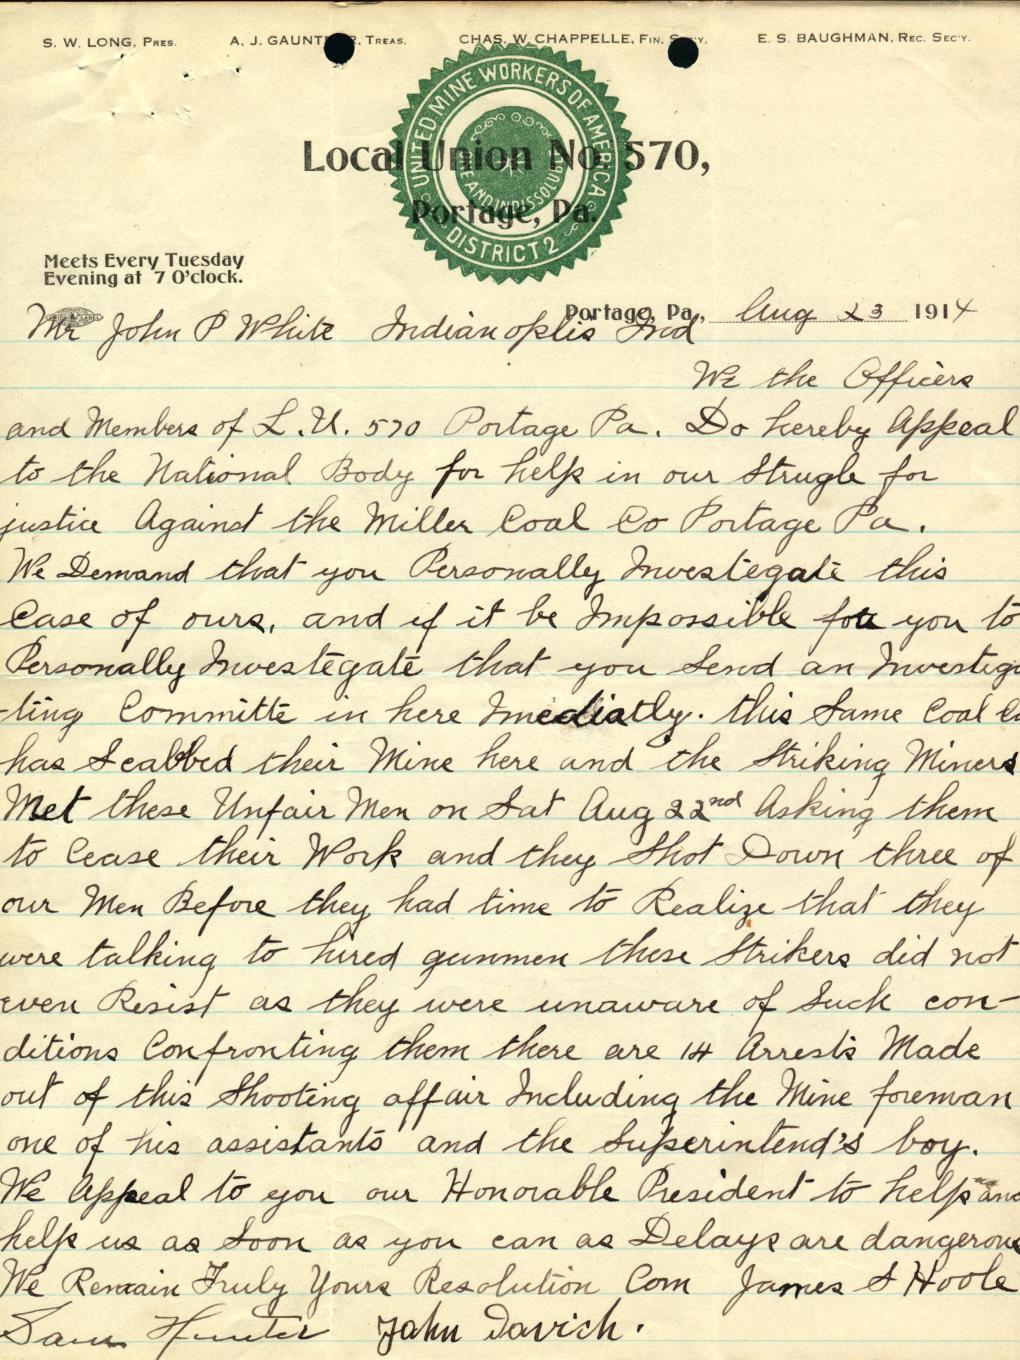 S. W. LONG, PRES. A. J. GAUNTNER, TREAS. CHAS. W. CHAPPELLE, FIN. SEC'Y. E. S. BAUGHMAN, REC. SEC'Y.
UNITED MINE WORKERS OF AMERICA
DISTRICT 2
Local Union No. 570,
Portage, Pa.
Meets Every Tuesday
Evening at 7 O'clock.
Portage, Pa., Aug 23 1914
Mr John P White Indianoplis Ind
We the Officers
and Members of L.U. 570 Portage Pa. Do hereby Appeal
to the National Body for help in our Strugle for
justice Against the Miller Coal Co Portage Pa.
We Demand that you Personally Investegate this
Case of ours, and if it be Impossible for you to
Personally Investegate that you Send an Investiga
-ting Committe in here Imediatly. this Same Coal Co
has Scabbed their Mine here and the Striking Miners
Met these Unfair Men on Sat Aug 22nd Asking them
to Cease their Work and they Shot Down three of
our Men Before they had time to Realize that they
were talking to hired gunmen these Strikers did not
even Resist as they were unaware of Such con-
ditions Confronting them there are 14 Arrests Made
out of this Shooting affair Including the Mine foreman
one of his assistants and the Superintend's boy.
We Appeal to you our Honorable President to help and
help us as Soon as you can as Delays are dangerous
We Remain Truly Yours Resolution Com James S Hoole
Sam Hunter John Davich.